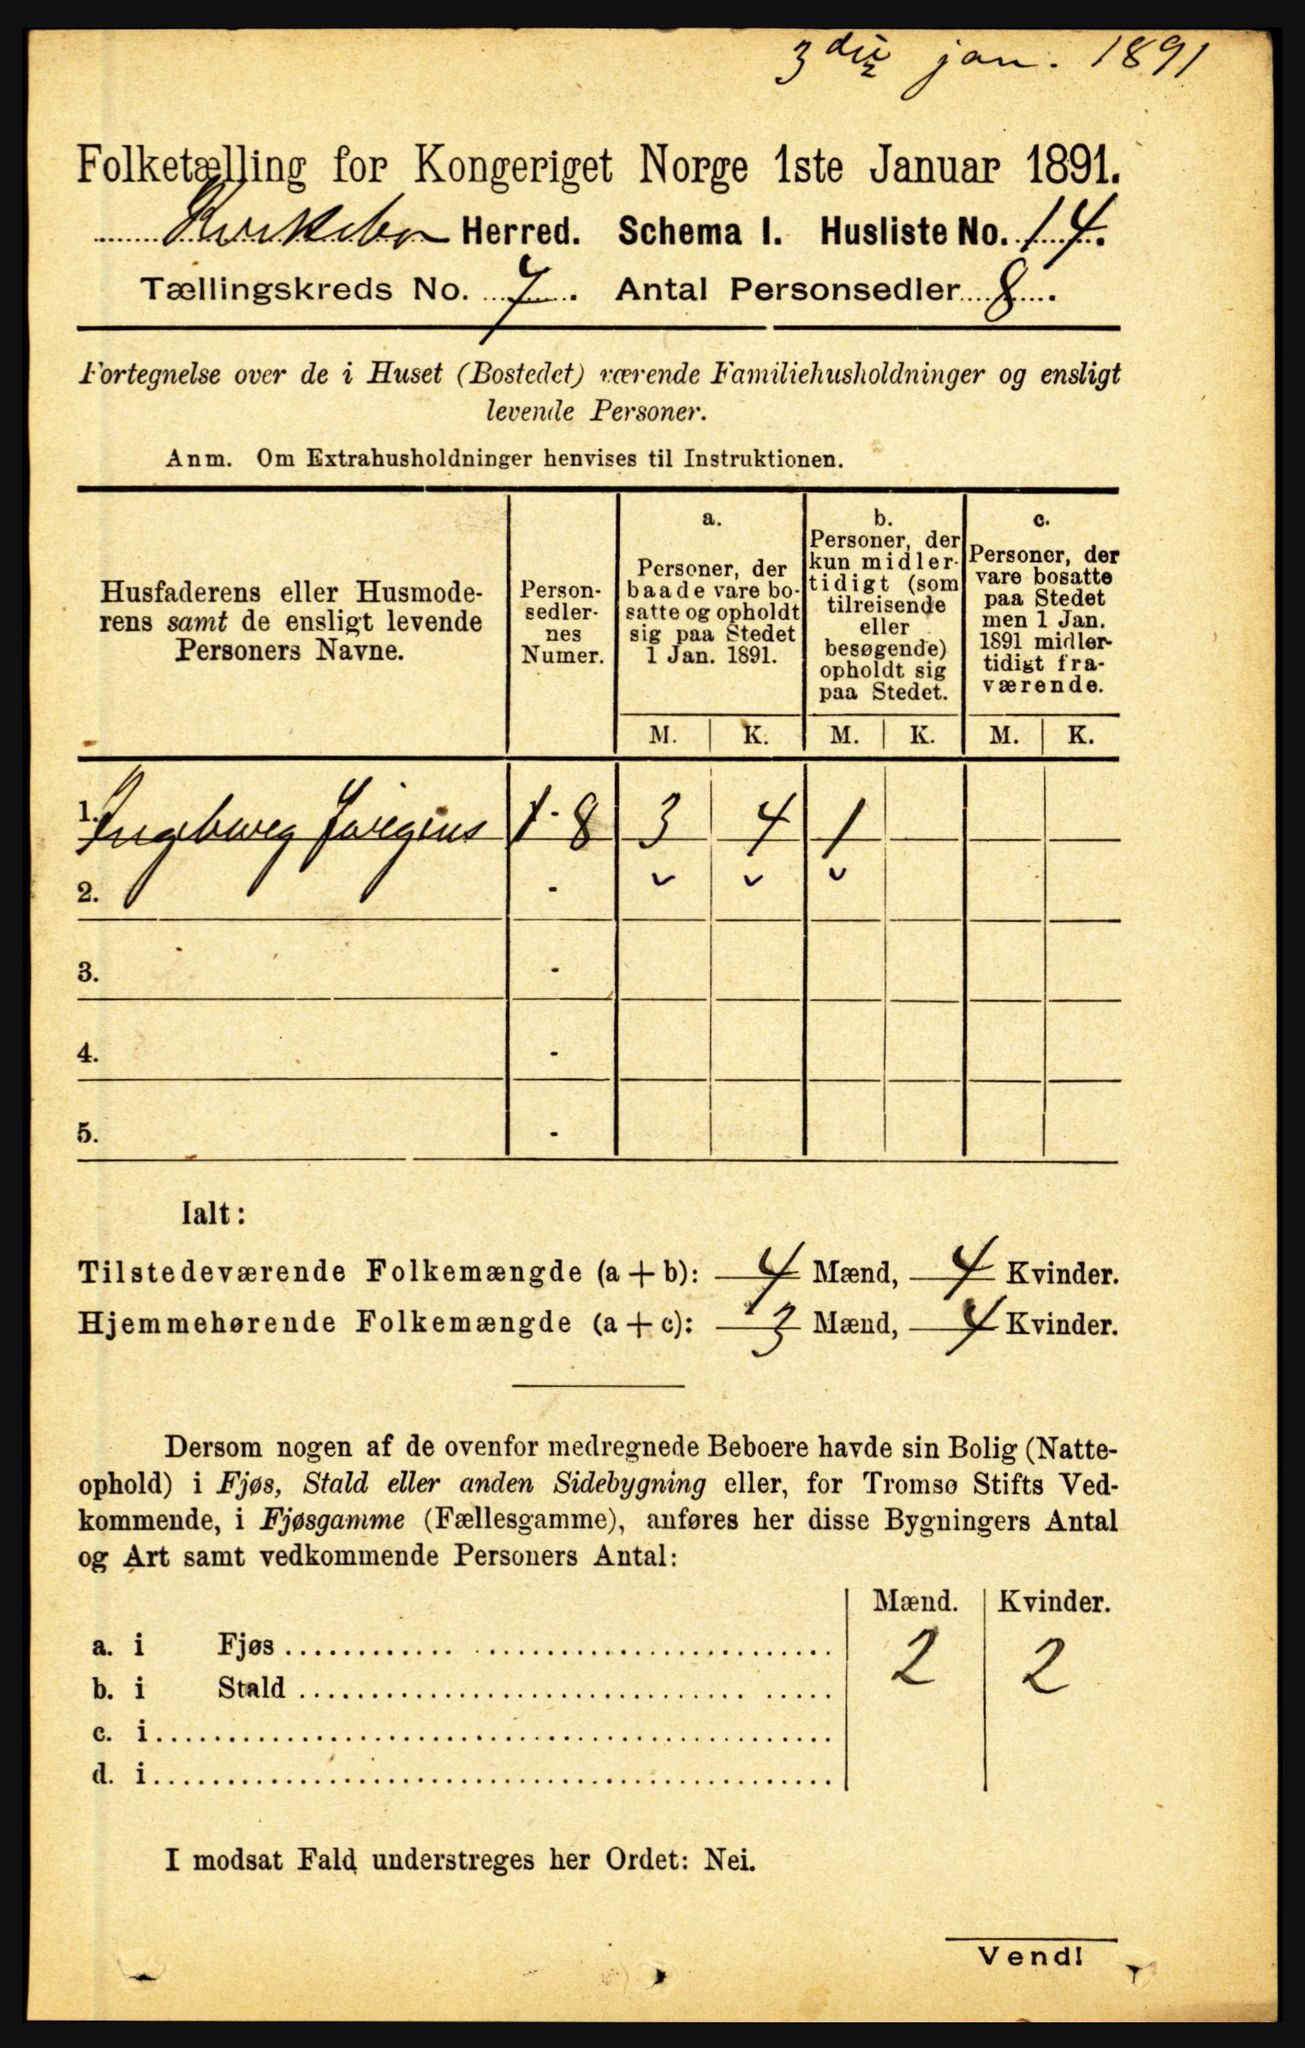 3die jan. 1891
Folketælling for Kongeriget Norge 1ste Januar 1891.
Kirkebø Herred. Schema I. Husliste No. 14.
Tællingskreds No. 7. Antal Personsedler 8.
Fortegnelse over de i Huset (Bostedet) værende Familiehusholdninger og ensligt
levende Personer.
Anm. Om Extrahusholdninger henvises til Instruktionen.
Husfaderens eller Husmode-
rens samt de ensligt levende
Personers Navne.
Person-
sedler-
nes
Numer.
a.
Personer, der
baade vare bo-
satte og opholdt
sig paa Stedet
1 Jan. 1891.
b.
Personer, der
kun midler-
tidigt (som
tilreisende
eller
besøgende)
opholdt sig
paa Stedet.
c.
Personer, der
vare bosatte
paa Stedet
men 1 Jan.
1891 midler-
tidigt fra-
værende.
M. K. M. K. M. K.
1. Ingeborg Jørgens 1-8 3 4 1
2. - ✓ ✓ ✓
3. -
4. -
5. -
Ialt:
Tilstedeværende Folkemængde (a + b): 4 Mænd, 4 Kvinder.
Hjemmehørende Folkemængde (a + c): 3 Mænd, 4 Kvinder.
Dersom nogen af de ovenfor medregnede Beboere havde sin Bolig (Natte-
ophold) i Fjøs, Stald eller anden Sidebygning eller, for Tromsø Stifts Ved-
kommende, i Fjøsgamme (Fællesgamme), anføres her disse Bygningers Antal
og Art samt vedkommende Personers Antal:
Mænd. Kvinder.
a. i Fjøs 2 2
b. i Stald
c. i
d. i
I modsat Fald understreges her Ordet: Nei.
Vend!